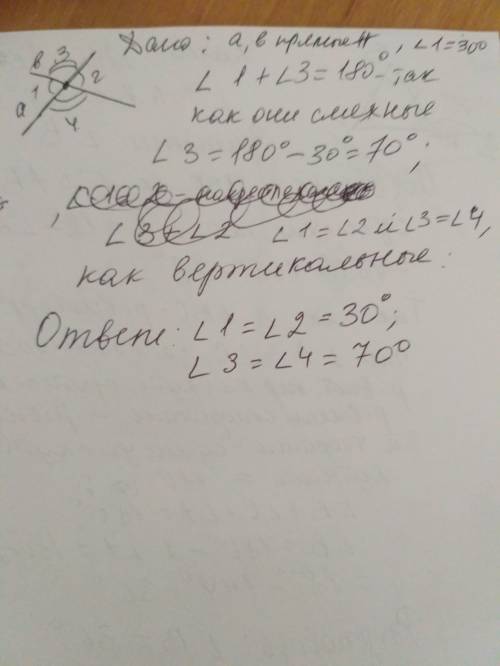 в 3
1 2
а
4
Дано: а, в прямые, ∠1=30°
∠1+∠3=180°-так
как они смежные
∠3=180°-30°=70°;
∠3 ∠2 ∠1=∠2 и ∠3=∠4,
как вертикальные:
Ответ: ∠1=∠2=30°;
∠3=∠4=70°